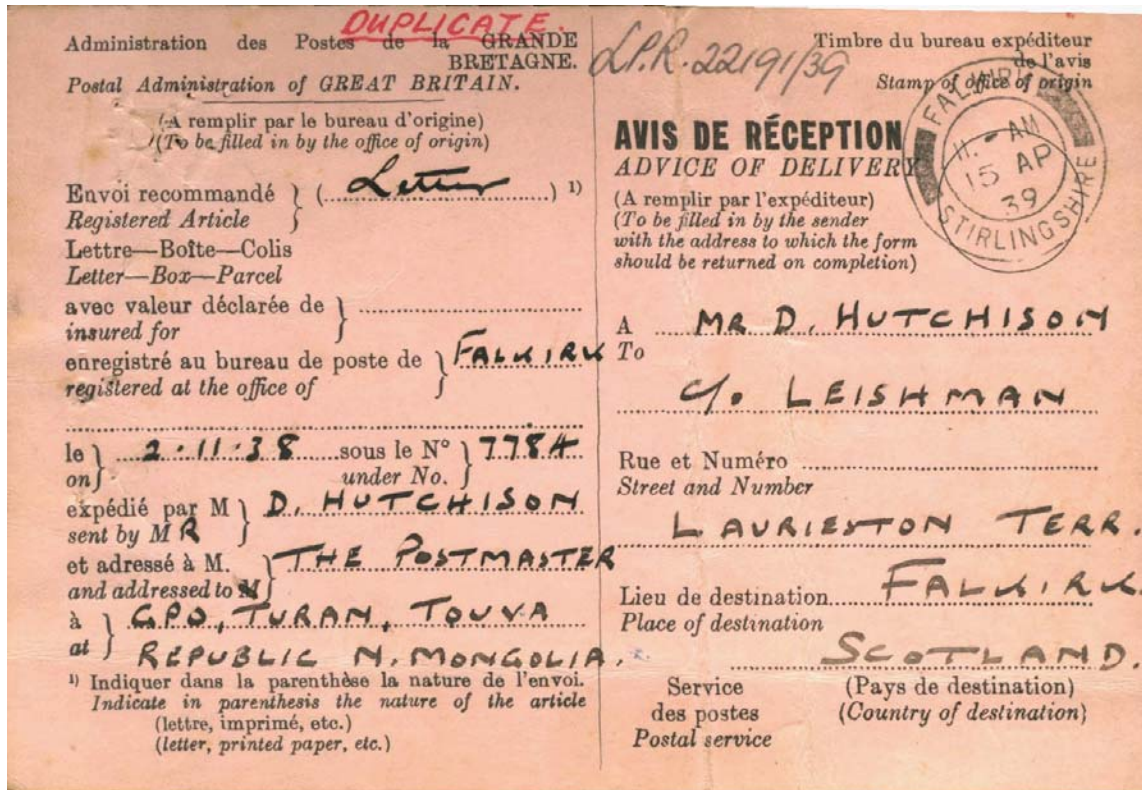 DUPLICATE.
Administration des Postes de la GRANDE
BRETAGNE.
Postal Administration of GREAT BRITAIN.
(A remplir par le bureau d'origine)
(To be filled in by the office of origin)
Envoi recommandé } (Letter) 1)
Registered Article
Lettre—Boîte—Colis
Letter—Box—Parcel
avec valeur déclarée de }
insured for
enregistré au bureau de poste de } FALKIRK
registered at the office of
le } 2.11.38 sous le N° } 7784
on under No.
expédié par M } D. HUTCHISON
sent by MR
et adressé à M. } THE POSTMASTER
and addressed to M
à } GPO, TURAN, TOUVA
at REPUBLIC N. MONGOLIA.
1) Indiquer dans la parenthèse la nature de l'envoi.
Indicate in parenthesis the nature of the article
(lettre, imprimé, etc.)
(letter, printed paper, etc.)
L.P.R. 22191/39
Timbre du bureau expéditeur
de l'avis
Stamp of office of origin
FALKIRK
11. - AM
15 AP
39
STIRLINGSHIRE
AVIS DE RÉCEPTION
ADVICE OF DELIVERY
(A remplir par l'expéditeur)
(To be filled in by the sender
with the address to which the form
should be returned on completion)
A MR D. HUTCHISON
To
c/o LEISHMAN
Rue et Numéro
Street and Number
LAURIESTON TERR.
Lieu de destination FALKIRK.
Place of destination
SCOTLAND.
Service (Pays de destination)
des postes (Country of destination)
Postal service